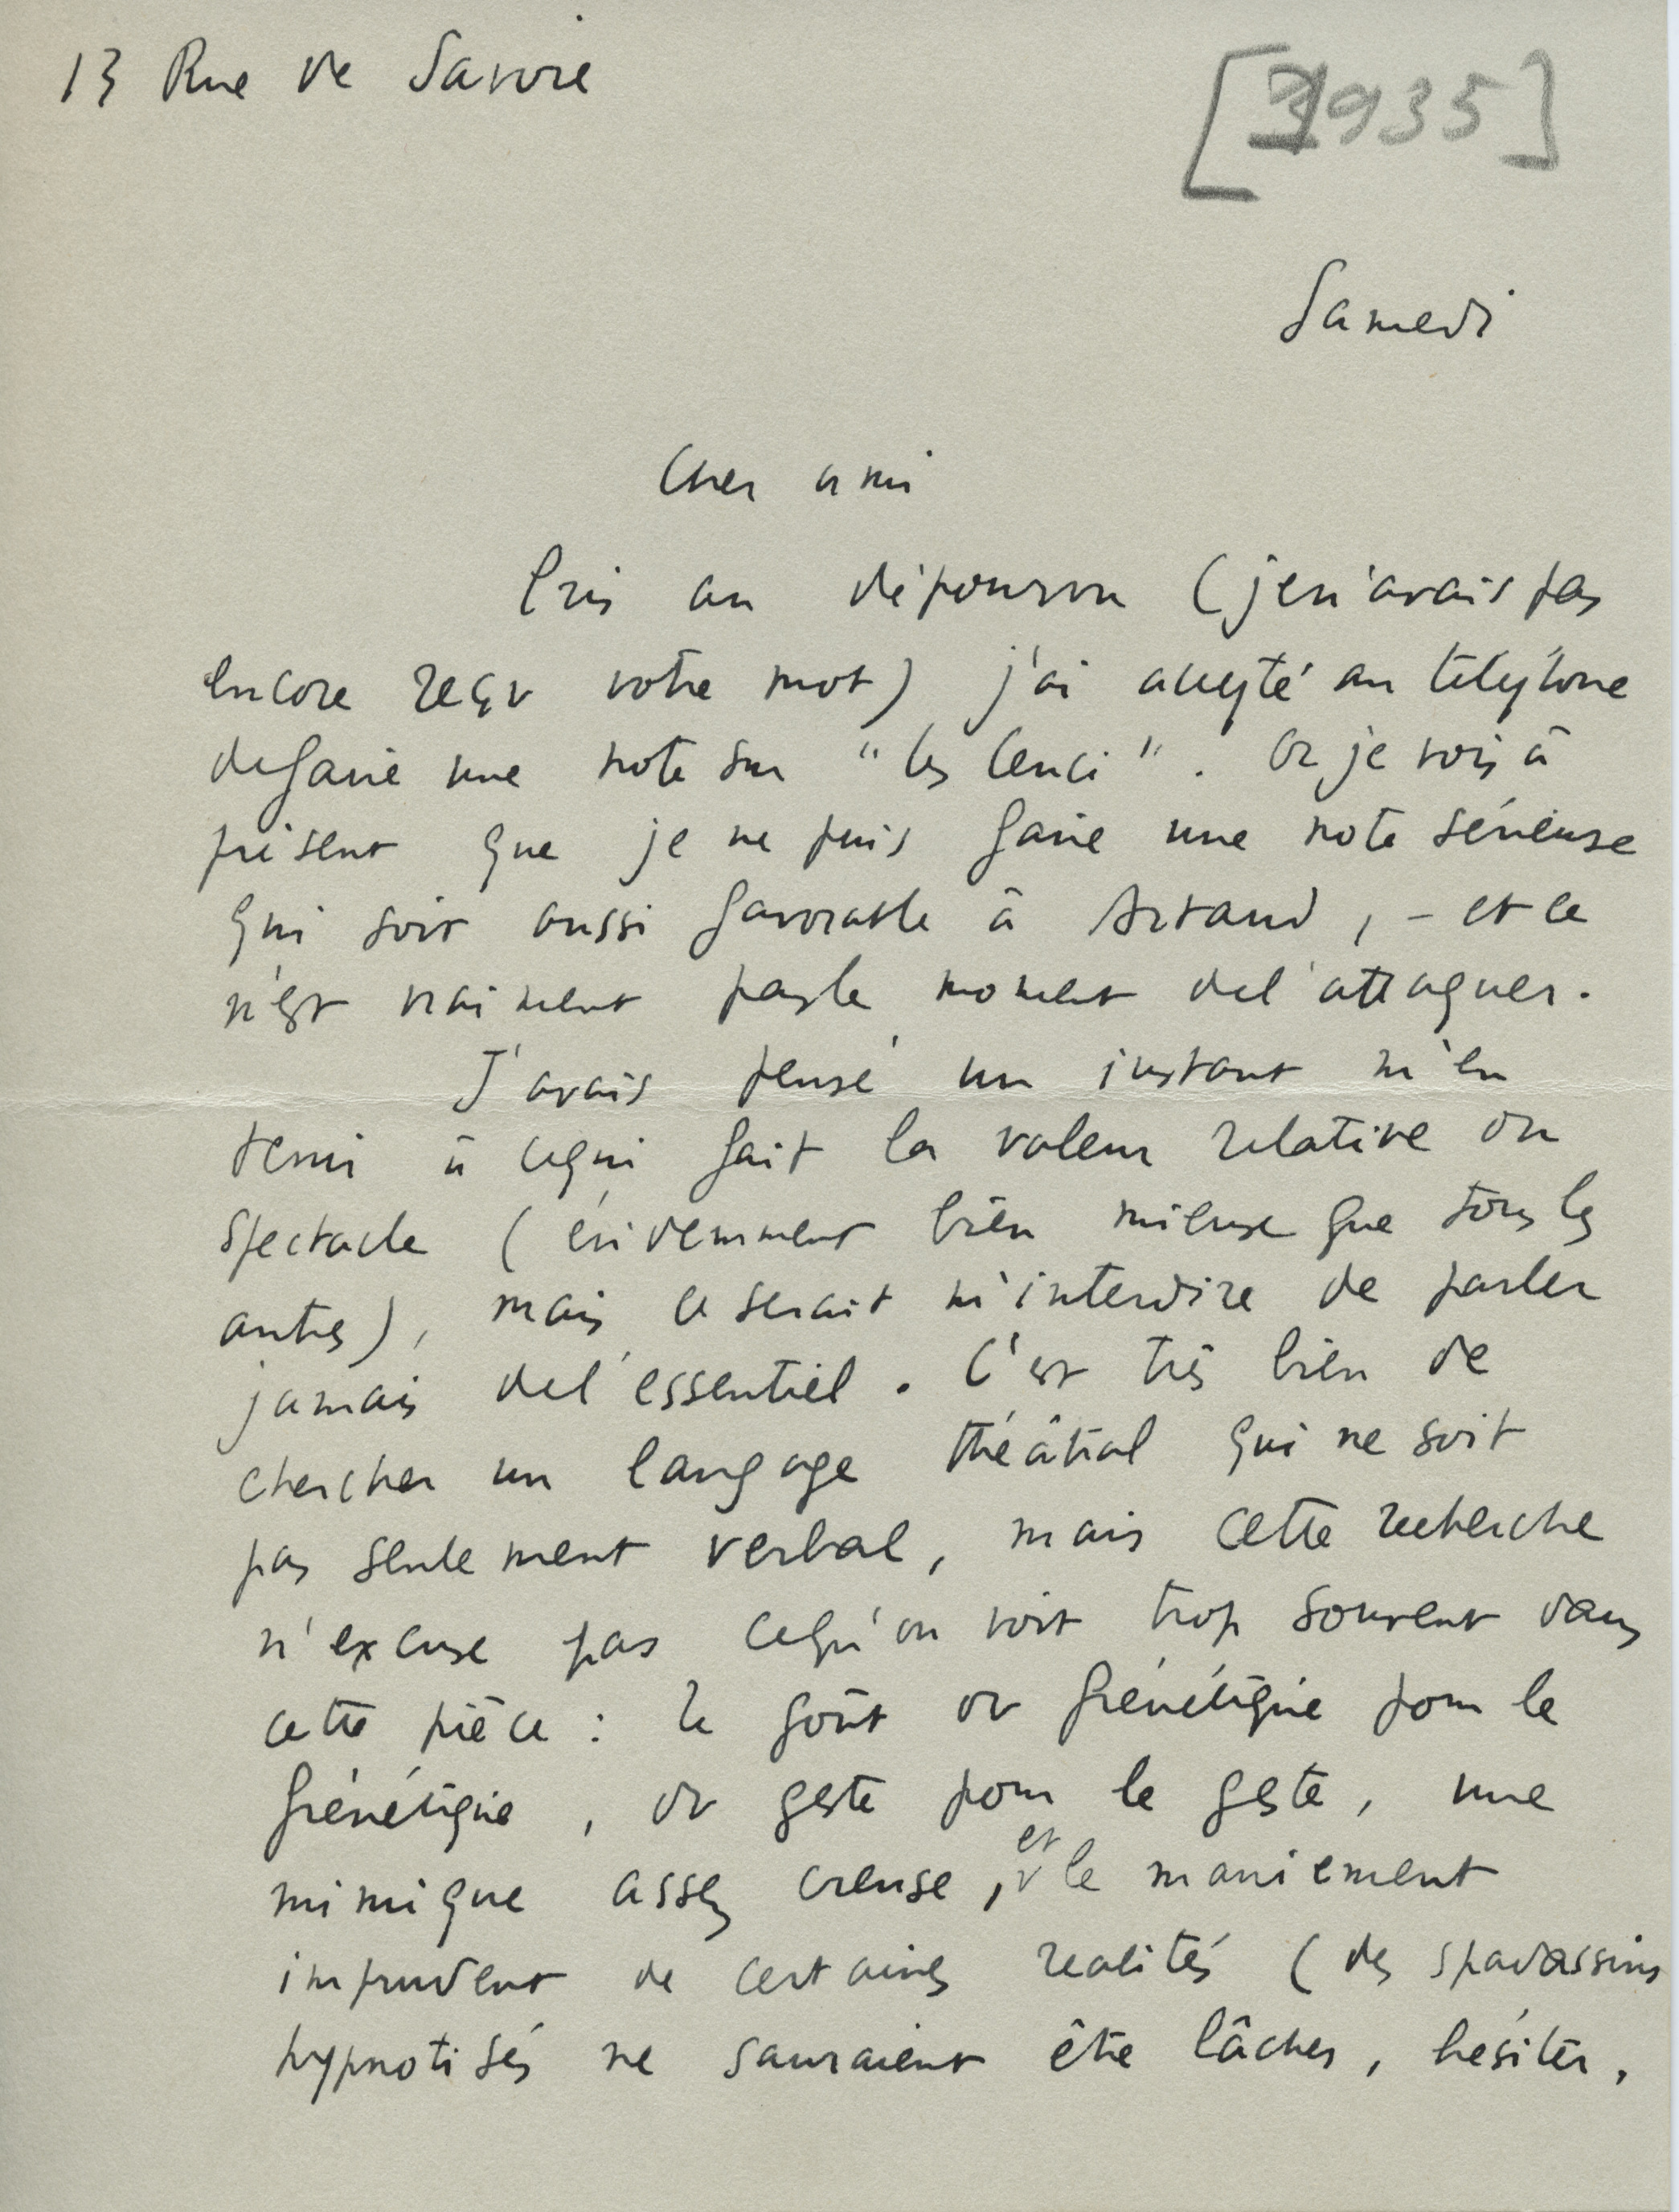 13 Rue de Savoie
[1935]
Samedi
Cher ami
Pris au dépourvu (je n'avais pas
encore reçu votre mot) j'ai accepté au téléphone
de faire une note sur "les Cenci". Or je vois à
présent que je ne puis faire une note sérieuse
qui soit aussi favorable à Artaud, – et ce
n'est vraiment pas le moment de l'attaquer.
J'avais pensé un instant m'en
tenir à ce qui fait la valeur relative du
spectacle (évidemment bien mieux que tous les
autres), mais ce serait m'interdire de parler
jamais de l'essentiel. C'est très bien de
chercher un langage théâtral qui ne soit
pas seulement verbal, mais cette recherche
n'excuse pas ce qu'on voit trop souvent dans
cette pièce : le goût du frénétique pour le
frénétique, du geste pour le geste, une
mimique assez creuse, et le maniement
imprudent de certaines réalités (des spadassins
hypnotisés ne sauraient être lâches, hésiter,